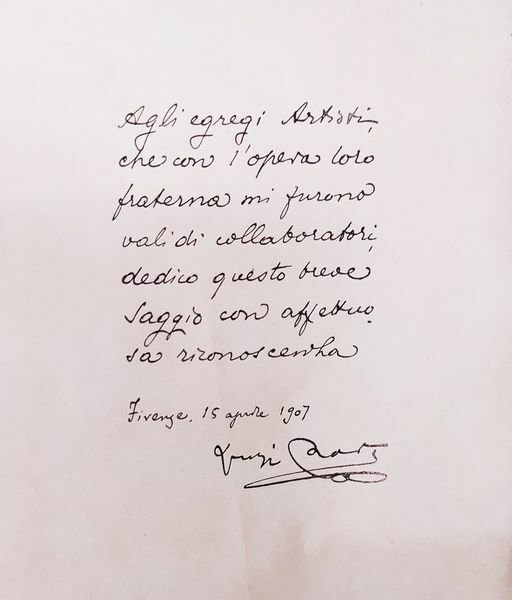 Agli egregi Artisti,
che con l'opera loro
fraterna mi furono
validi collaboratori,
dedico questo breve
Saggio con affettuo
sa riconoscenza
Firenze, 15 aprile 1907
Luigi